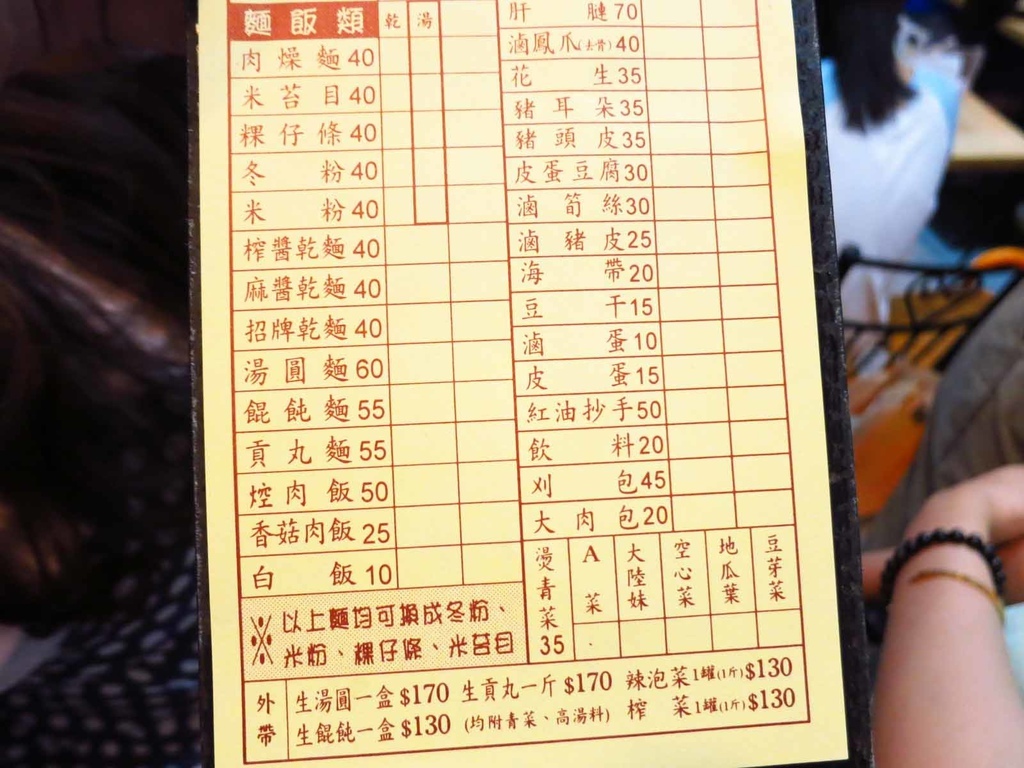 麵飯類 乾 湯
肉燥麵 40
米苔目 40
粿仔條 40
冬粉 40
米粉 40
榨醬乾麵 40
麻醬乾麵 40
招牌乾麵 40
湯圓麵 60
餛飩麵 55
貢丸麵 55
焢肉飯 50
香菇肉飯 25
白飯 10
※以上麵均可換成冬粉、
米粉、粿仔條、米苔目
肝腱 70
滷鳳爪(去骨) 40
花生 35
豬耳朵 35
豬頭皮 35
皮蛋豆腐 30
滷筍絲 30
滷豬皮 25
海帶 20
豆干 15
滷蛋 10
皮蛋 15
紅油抄手 50
飲料 20
刈包 45
大肉包 20
燙青菜 35
A菜
大陸妹
空心菜
地瓜葉
豆芽菜
外帶
生湯圓一盒 $170 生貢丸一斤 $170 辣泡菜1罐(1斤) $130
生餛飩一盒 $130 (均附青菜、高湯料) 榨菜1罐(1斤) $130